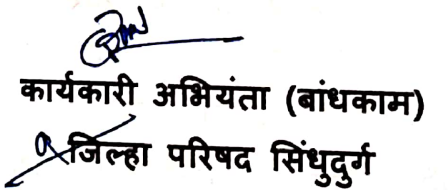 कार्यकारी अभियंता (बांधकाम)
जिल्हा परिषद सिंधुदुर्ग